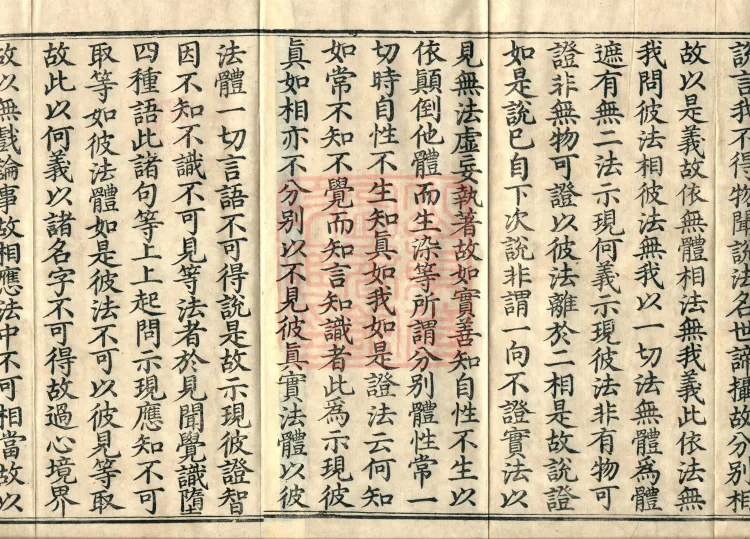 說言我不得物聞說法名世諦攝故分別相
故以是義故依無體相法無我義此依法無
我問彼法相彼法無我以一切法無體為體
遮有無二法示現何義示現彼法非有物可
證非無物可證以彼法離於二相是故說證
如是說已自下次說非謂一向不證實法以
見無法虛妄執著故如實善知自性不生以
依顛倒他體而生染等所謂分別體性常一
切時自性不生知真如我如是證法云何知
如常不知不覺而知言知識者此為示現彼
真如相亦不分別以不見彼真實法體以彼
法體一切言語不可得說是故示現彼證智
因不知不識不可見等法者於見聞覺識墮
四種語此諸句等上上起問示現應知不可
取等如彼法體如是彼法不可以彼見等取
故此以何義以諸名字不可得故過心境界
故以無戲論事故相應法中不可相當故以